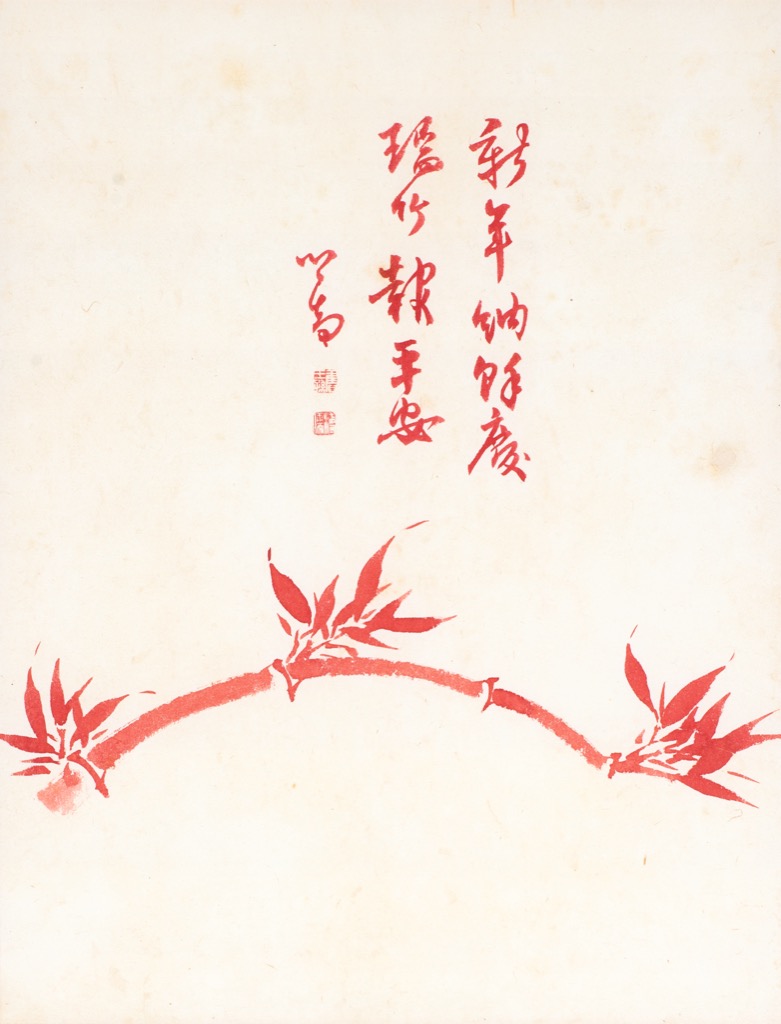 新年納餘慶
瑞竹報平安
心畬